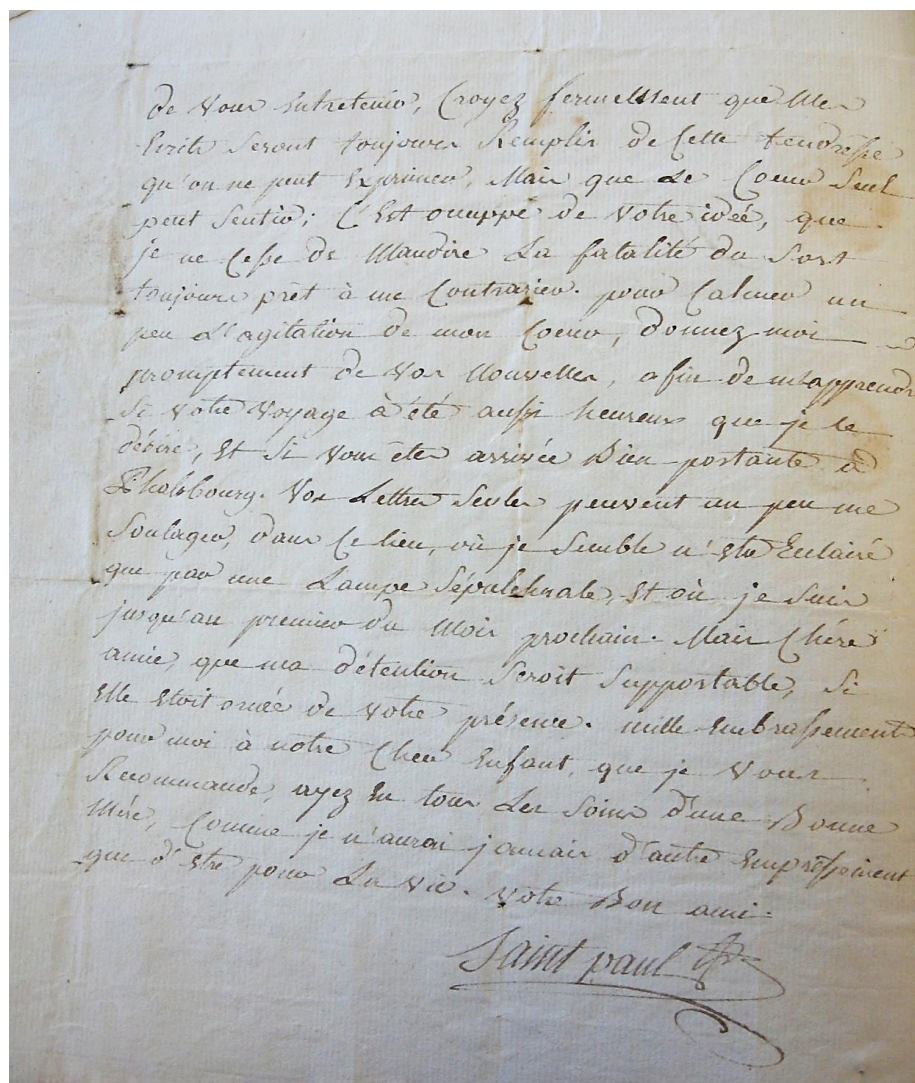 de Vous Entretenir, Croyez fermement que Mes
Ecrits Seront toujours Remplis de Cette tendresse
qu'on ne peut Exprimer, Mais que Le Coeur Seul
peut Sentir; C'Est occuppé de Votre idée, que
je ne Cesse de Maudire La fatalité du Sort
toujours prêt à me Contrarier. pour Calmer un
peu L'agitation de mon Coeur, donnez-moi
promptement de Vos Nouvelles, afin de m'apprendre
Si Votre Voyage à été aussi heureux que je le
désire, Et Si Vous êtes arrivée Bien portante à
Phalsbourg. Vos Lettres Seules peuvent un peu me
Soulager, dans Ce lieu, où je Semble n'Etre Eclairé
que par une Lampe Sépulchrale, Et où je Suis
jusqu'au premier du Mois prochain. Mais Chére
amie, que ma détention Seroit Supportable, Si
Elle Etoit ornée de Votre présence. mille Embrassements
pour moi à notre Cher Enfant, que je Vous
Recommande, ayez En tous Les Soins d'une Bonne
Mére, Comme je n'aurai jamais d'autre Empressement
que d'Etre pour La Vie. Votre Bon ami.
Saint paul